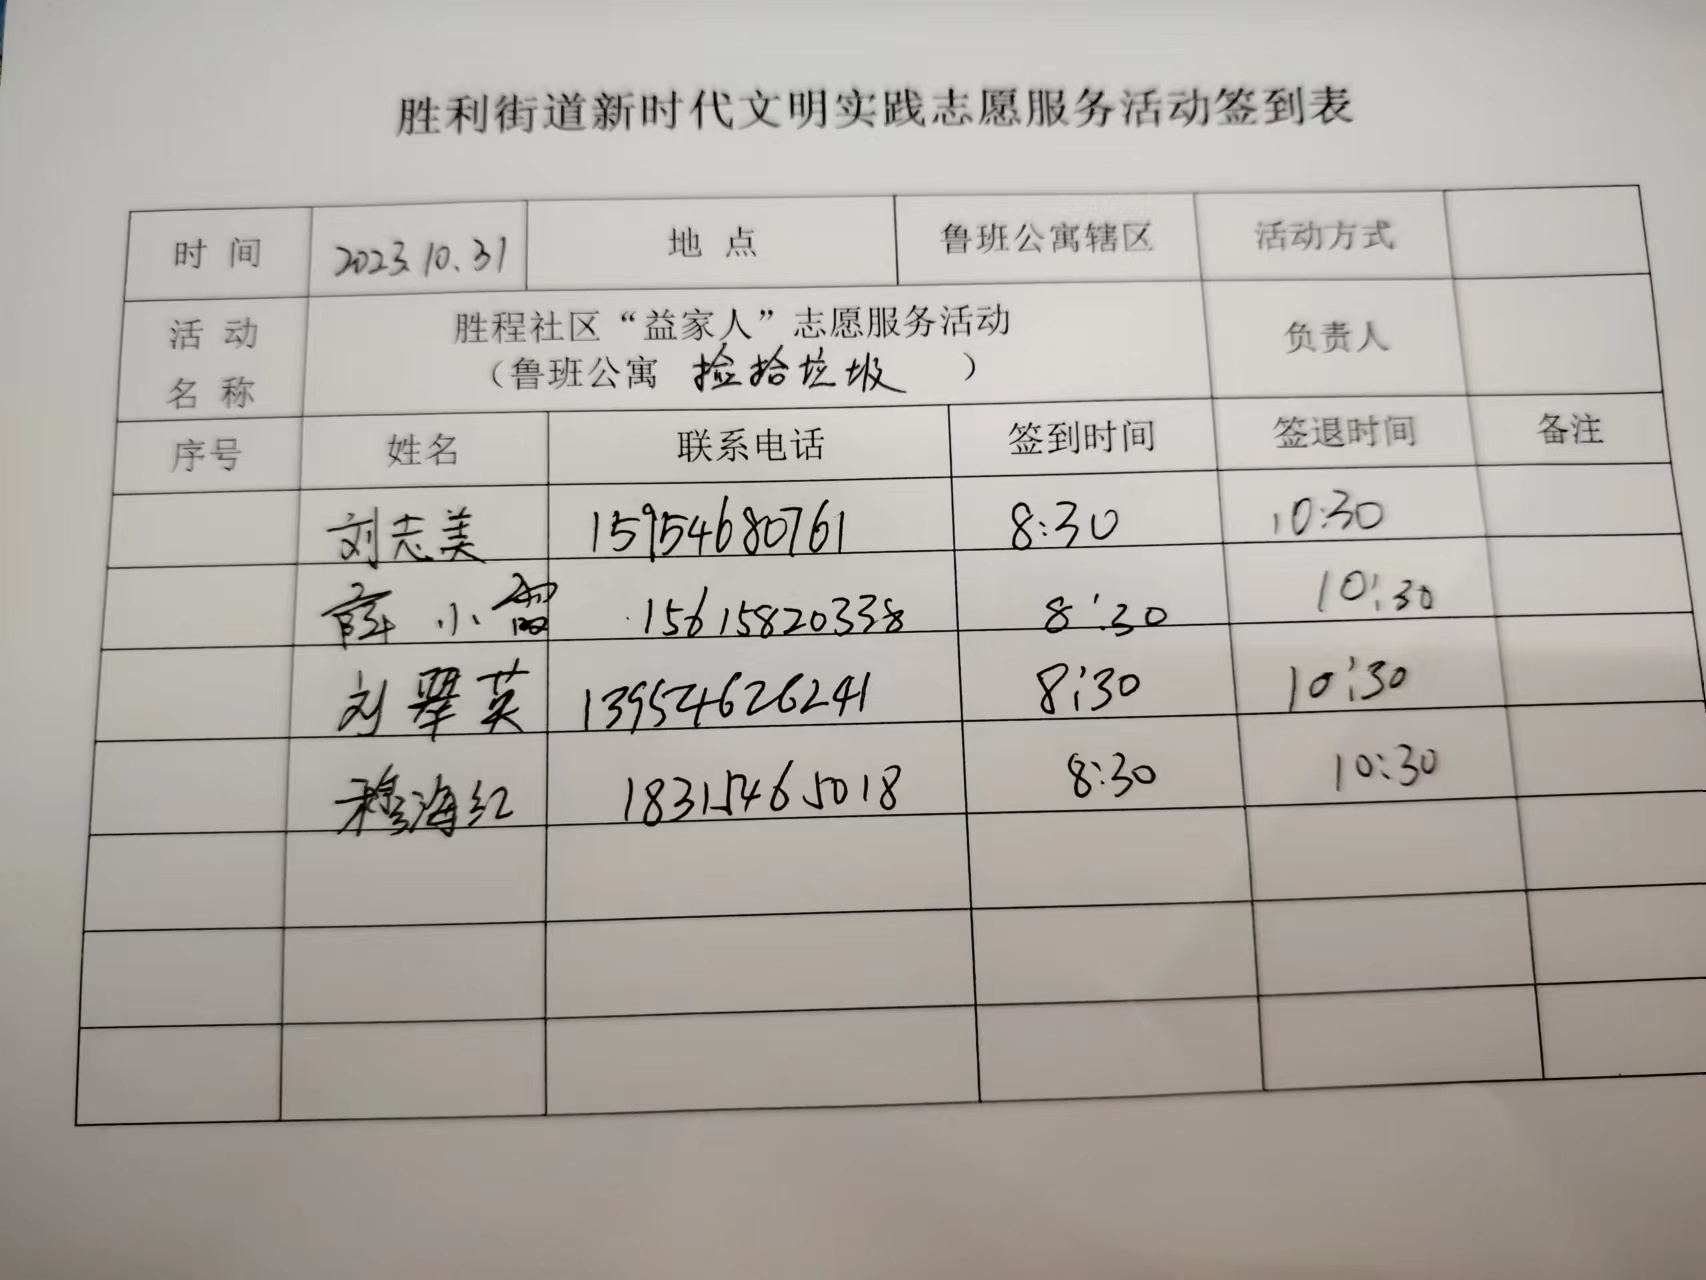 胜利街道新时代文明实践志愿服务活动签到表
时 间 2023.10.31 地 点 鲁班公寓辖区 活动方式
活 动 名 称 胜程社区“益家人”志愿服务活动 负责人
（鲁班公寓 捡拾垃圾 ）
序号 姓名 联系电话 签到时间 签退时间 备注
刘志美 15954680761 8:30 10:30
薛小霞 15615820338 8:30 10:30
刘翠英 13954626241 8:30 10:30
穆海红 18315465018 8:30 10:30